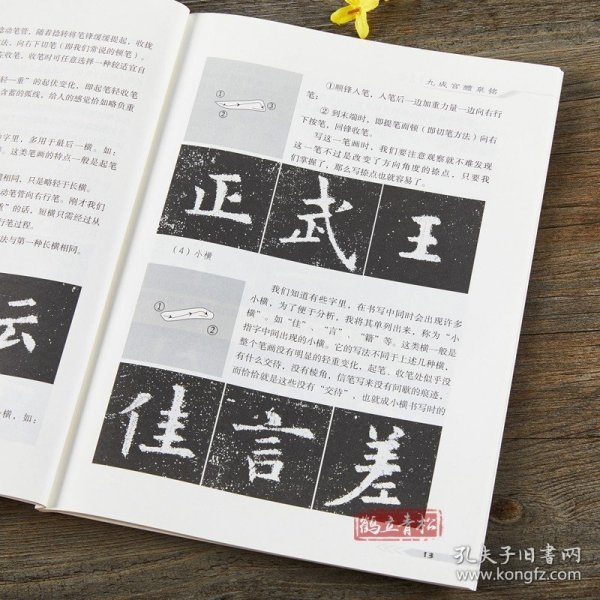 动笔管，随着捻转将笔锋缓缓提起，收拢
法，向右下切笔（即我们常说的顿笔）。
在收笔，收笔时可任意选择一种较适宜自
轻—重”的起伏变化，即起笔轻收笔
含蓄的弧线，给人的感觉恰如略负重
字里，多用于最后一横。如：
这类笔画的特点一般是起笔
相同，只是略轻于长横。
动笔管向右行笔。刚才我们
重”的话，短横只需经过从
行笔过程。
法与第一种长横相同。
云
横，如：
九成宫醴泉铭
①
②
③
①顺锋入笔，入笔后一边加重力量一边向右行
笔；
②到末端时，即提笔而顿（即切笔方法）向右
下按笔，回锋收笔。
写这一笔画时，我们要注意观察就不难发现
这一笔不过是改变了方向角度的捺点，只要我
们掌握了，那么写捺点也就容易了。
正 武 王
（4）小横
①
②
我们知道有些字里，在书写中同时会出现许多
小横，为了便于分析，我将其单列出来，称为“小
横”。如“佳”、“言”、“籍”等。这类横一般是
指字中间出现的小横。它的写法不同于上述几种横，
整个笔画没有明显的轻重变化，起笔、收笔处似乎没
有什么交待，没有棱角，信笔写来没有间歇的痕迹，
而恰恰就是这些没有“交待”，也就成小横书写时的
佳 言 差
鹤立青松
13
孔夫子旧书网
www.kongfz.com